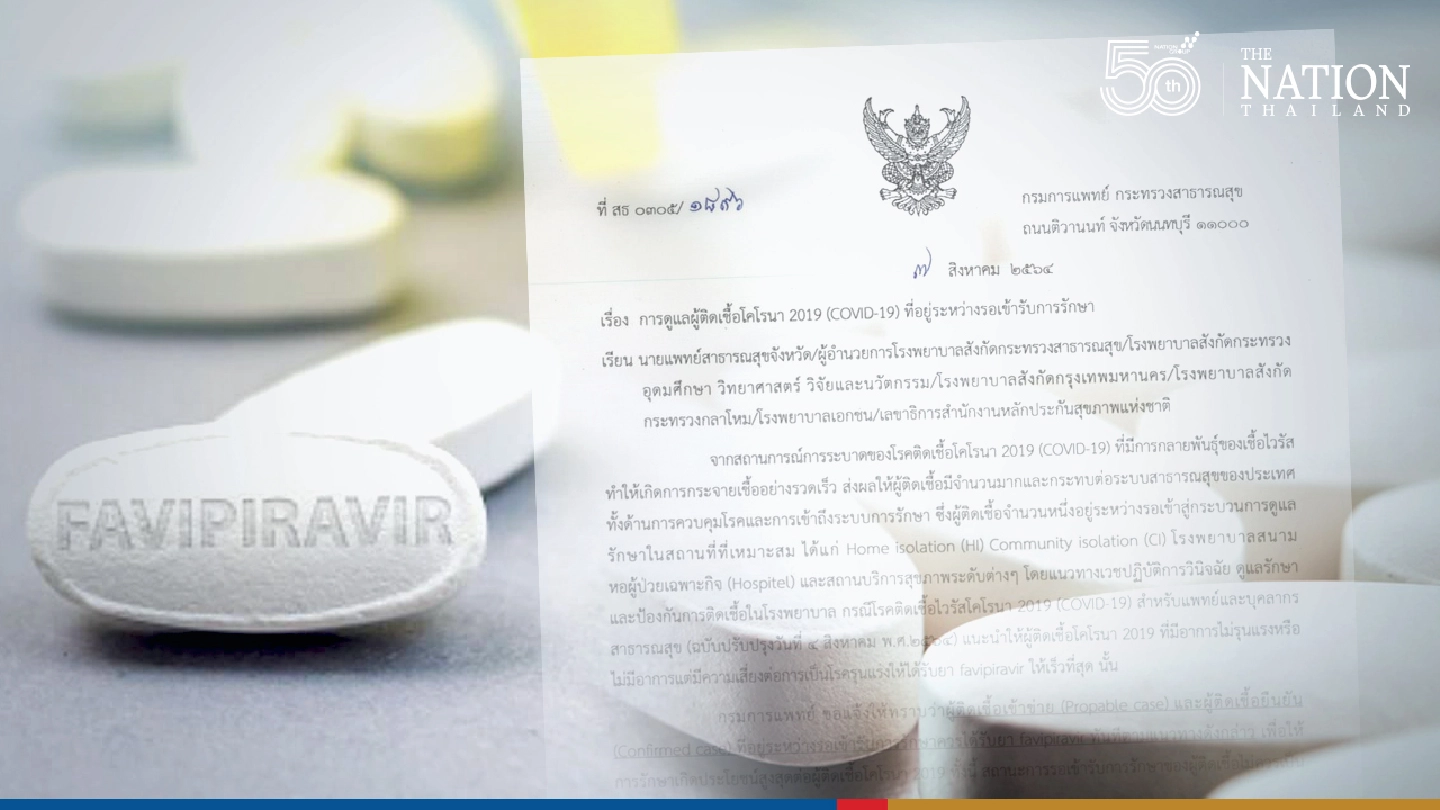 50th
THE
NATION
THAILAND
ที่ สธ ๐๓๐๕/
กรมการแพทย์ กระทรวงสาธารณสุข
ถนนติวานนท์ จังหวัดนนทบุรี ๑๑๐๐๐
๗ สิงหาคม ๒๕๖๔
เรื่อง การดูแลผู้ติดเชื้อโคโรนา 2019 (COVID-19) ที่อยู่ระหว่างรอเข้ารับการรักษา
เรียน นายแพทย์สาธารณสุขจังหวัด/ผู้อำนวยการโรงพยาบาลสังกัดกระทรวงสาธารณสุข/โรงพยาบาลสังกัดกระทรวง
อุดมศึกษา วิทยาศาสตร์ วิจัยและนวัตกรรม/โรงพยาบาลสังกัดกรุงเทพมหานคร/โรงพยาบาลสังกัด
กระทรวงกลาโหม/โรงพยาบาลเอกชน/เลขาธิการสำนักงานหลักประกันสุขภาพแห่งชาติ
จากสถานการณ์การระบาดของโรคติดเชื้อโคโรนา 2019 (COVID-19) ที่มีการกลายพันธุ์ของเชื้อไวรัส
ทำให้เกิดการกระจายเชื้ออย่างรวดเร็ว ส่งผลให้ผู้ติดเชื้อมีจำนวนมากและกระทบต่อระบบสาธารณสุขของประเทศ
ทั้งด้านการควบคุมโรคและการเข้าถึงระบบการรักษา ซึ่งผู้ติดเชื้อจำนวนหนึ่งอยู่ระหว่างรอเข้าสู่กระบวนการดูแล
รักษาในสถานที่ที่เหมาะสม ได้แก่ Home isolation (HI) Community isolation (CI) โรงพยาบาลสนาม
หอผู้ป่วยเฉพาะกิจ (Hospitel) และสถานบริการสุขภาพระดับต่างๆ โดยแนวทางเวชปฏิบัติการวินิจฉัย ดูแลรักษา
และป้องกันการติดเชื้อในโรงพยาบาล กรณีโรคติดเชื้อไวรัสโคโรนา 2019 (COVID-19) สำหรับแพทย์และบุคลากร
สาธารณสุข (ฉบับปรับปรุงวันที่ ๔ สิงหาคม พ.ศ.๒๕๖๔) แนะนำให้ผู้ติดเชื้อโคโรนา 2019 ที่มีอาการไม่รุนแรงหรือ
ไม่มีอาการแต่มีความเสี่ยงต่อการเป็นโรครุนแรงให้ได้รับยา favipiravir ให้เร็วที่สุด นั้น
กรมการแพทย์ ขอแจ้งให้ทราบว่าผู้ติดเชื้อเข้าข่าย (Propable case) และผู้ติดเชื้อยืนยัน
(Confirmed case) ที่อยู่ระหว่างรอเข้ารับการรักษาควรได้รับยา favipiravir ทันทีตามแนวทางดังกล่าว เพื่อให้
การรักษาเกิดประโยชน์สูงสุดต่อผู้ติดเชื้อโคโรนา 2019 ทั้งนี้ สถานะการรอเข้ารับการรักษาของผู้ติดเชื้อ
FAVIPIRAVIR